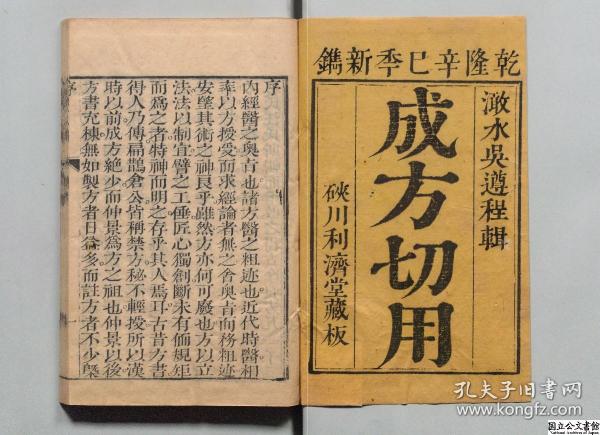 乾隆辛巳季新鐫
澉水吳遵程輯
成方切用
硤川利濟堂藏板
序
內經醫之奧旨也諸方醫之粗迹也近代時醫相
率以方授受而求經論者無之舍奧旨而務粗迹
安望其術之神良乎雖然方亦何可廢也方以立
法法以制宜譬之工倕匠心獨創斷未有偭規矩
而為之者特神而明之存乎其人焉耳古昔方書
得人乃傳扁鵲倉公皆稱禁方秘不輕授所以漢
時以前成方絶少而仲景為方之祖也仲景以後
方書充棟無如製方者日益多而註方者不少槩
序
一
孔夫子旧书网
www.kongfz.com
国立公文書館
National Archives of Japan